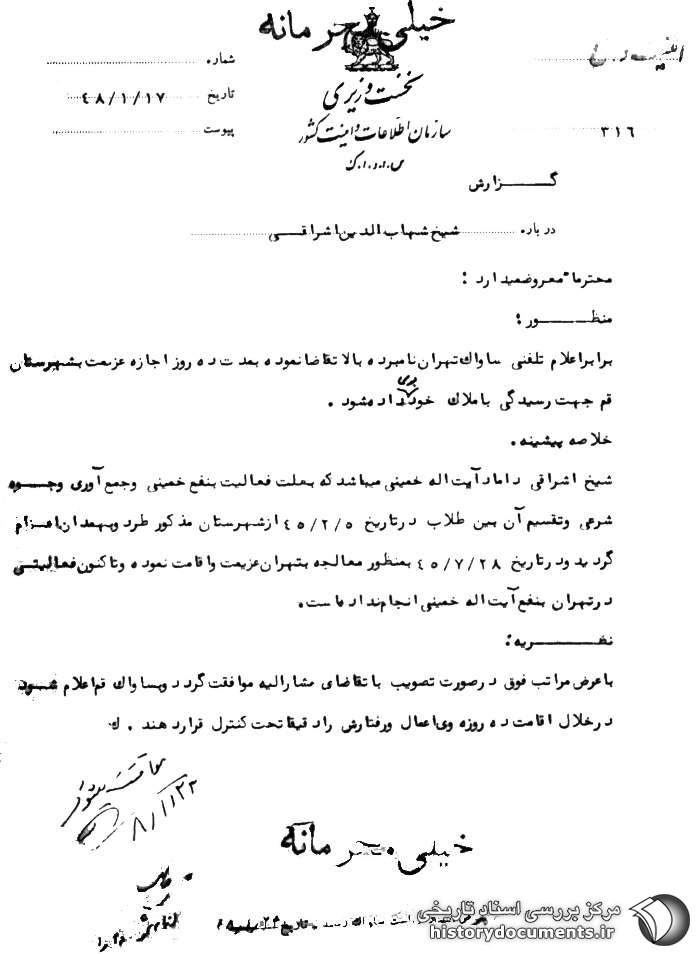 خیلی محرمانه
شماره
نخست وزیری
تاریخ ٤٨/١/١٧
سازمان اطلاعات و امنیت کشور
پیوست
س.ا.و.ا.ک
٣١٦
گـــزارش
درباره شیخ شهاب الدین اشراقـــی
محترما" معروضمیدارد :
منظـــــور :
برابر اعلام تلفنی ساواک تهران نامبرده بالا تقاضا نموده بمدت ده روز اجازه عزیمت بشهرستان
قم جهت رسیدگی باملاک خود بوی داده شود .
خلاصه پیشینه .
شیخ اشراقی داماد آیت اله خمینی میباشد که بعلت فعالیت بنفع خمینی وجمع آوری وجـــوه
شرعی وتقسیم آن بین طلاب درتاریخ ٤٥/٢/٥ از شهرستان مذکور طرد وبهمدان اعـزام
گردید ودرتاریخ ٤٥/٧/٢٨ بمنظور معالجه بتهران عزیمت واقامت نموده وتاکنون فعالیتـــی
درتهران بنفع آیت اله خمینی انجام نداده است .
نظـــــریه :
باعرض مراتب فوق درصورت تصویب با تقاضای مشارالیه موافقت گردد وبساواک قم اعلام شـــود
درخلال اقامت ده روزه وی اعمال ورفتارش را دقیقا تحت کنترل قرار دهند . ک
موافقت میشود
خیلی محرمانه
مرکز بررسی اسناد تاریخی
historydocuments.ir